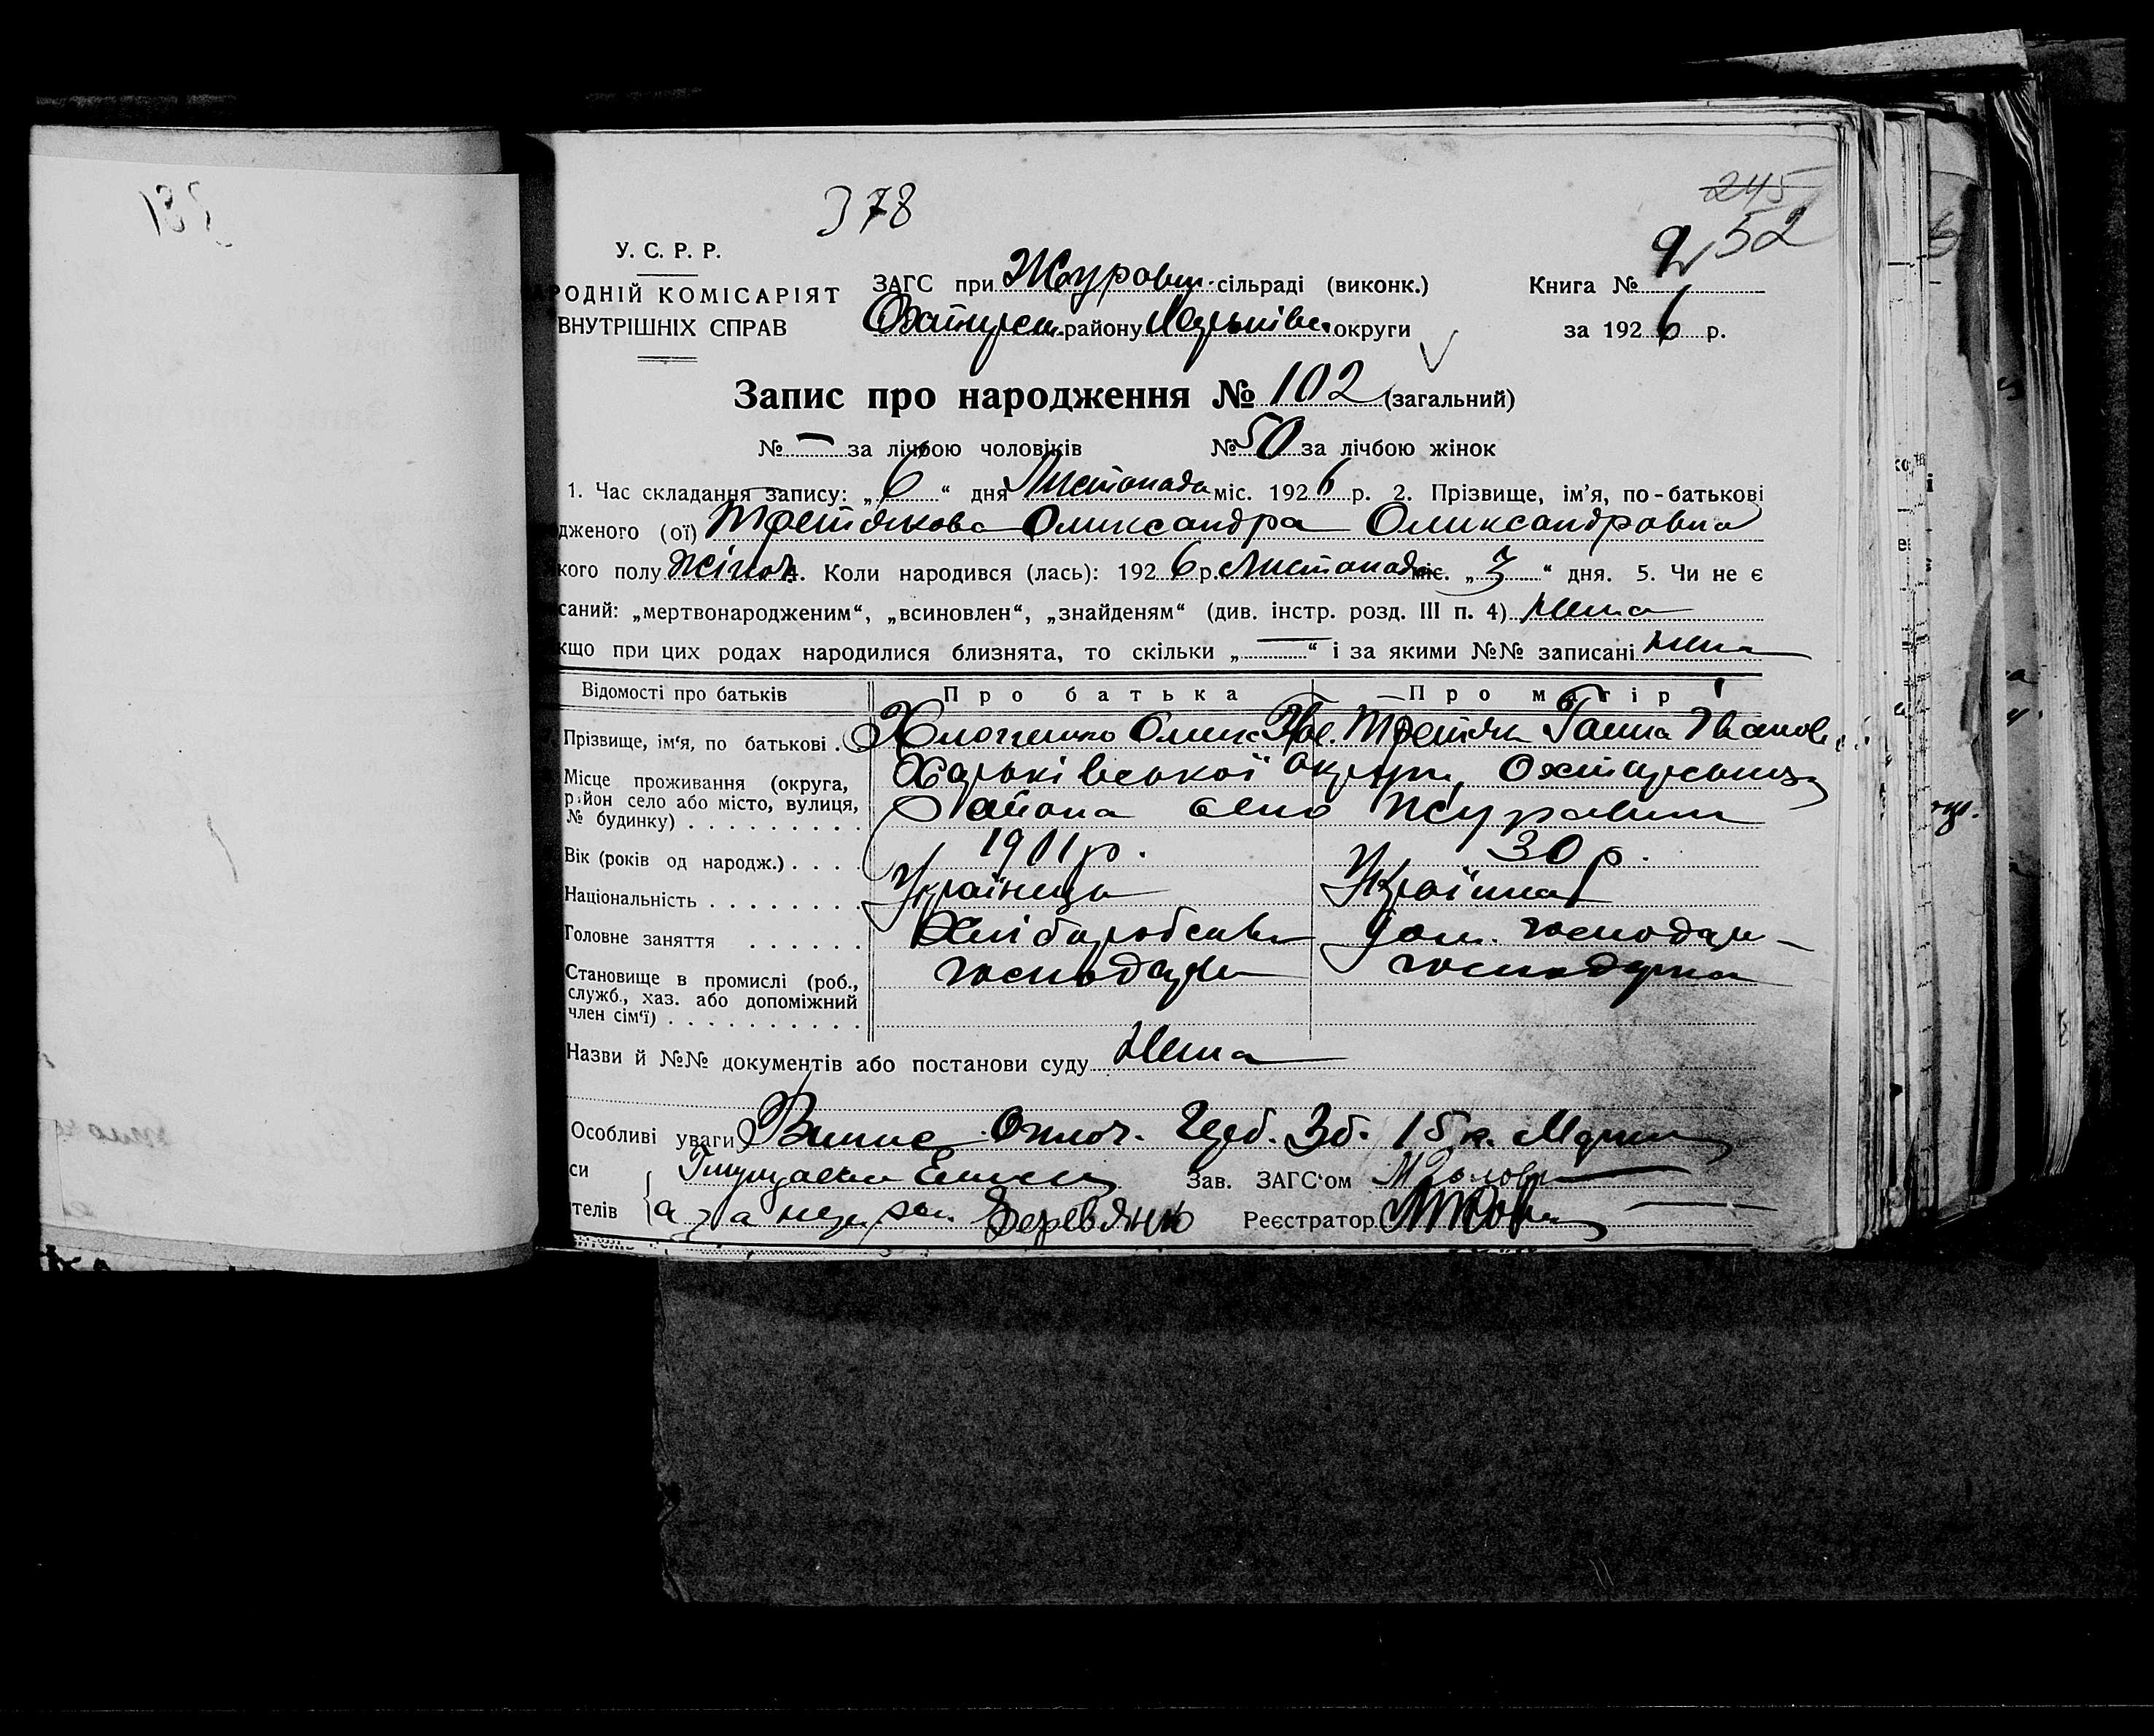 245
378
52
У. С. Р. Р.
РОДНІЙ КОМІСАРІЯТ
ВНУТРІШНІХ СПРАВ
ЗАГС при Журавн. сільраді (виконк.)
району Харьківс. округи
Книга №
за 1926 р.
Запис про народження № 102 (загальний)
№ — за лічбою чоловіків № 50 за лічбою жінок
1. Час складання запису: „6“ дня Листопада міс. 1926 р. 2. Прізвище, ім’я, по-батькові
дженого (ої) Третякова Олександра Олександровна
кого полу жіноч. 4. Коли народився (лась): 1926 р. Листопада міс. „3“ дня. 5. Чи не є
саний: „мертвонародженим“, „всиновлен“, „знайденям“ (див. інстр. розд. III п. 4) нема
кщо при цих родах народилися близнята, то скільки „—“ і за якими №№ записані нема
Відомості про батьків Про батька Про матір
Прізвище, ім‘я, по батькові . Третяк Ганна Іванов
Місце проживання (округа, Харьківської округи, Охтирського
район село або місто, вулиця, района село Журавни
№ будинку) . . . . . . . . .
Вік (років од народж.) . . . . 1901 р. 30 р.
Національність . . . . . . . . Українець Українка
Головне заняття . . . . . . Хліборобство дом. господар
Становище в промислі (роб., господарь господарка
служб., хаз. або допоміжний
член сім‘ї) . . . . . . . . . .
Назви й №№ документів або постанови суду Нема
Особливі уваги 15 к.
си Зав. ЗАГС‘ом
телів Деревянко Реєстратор